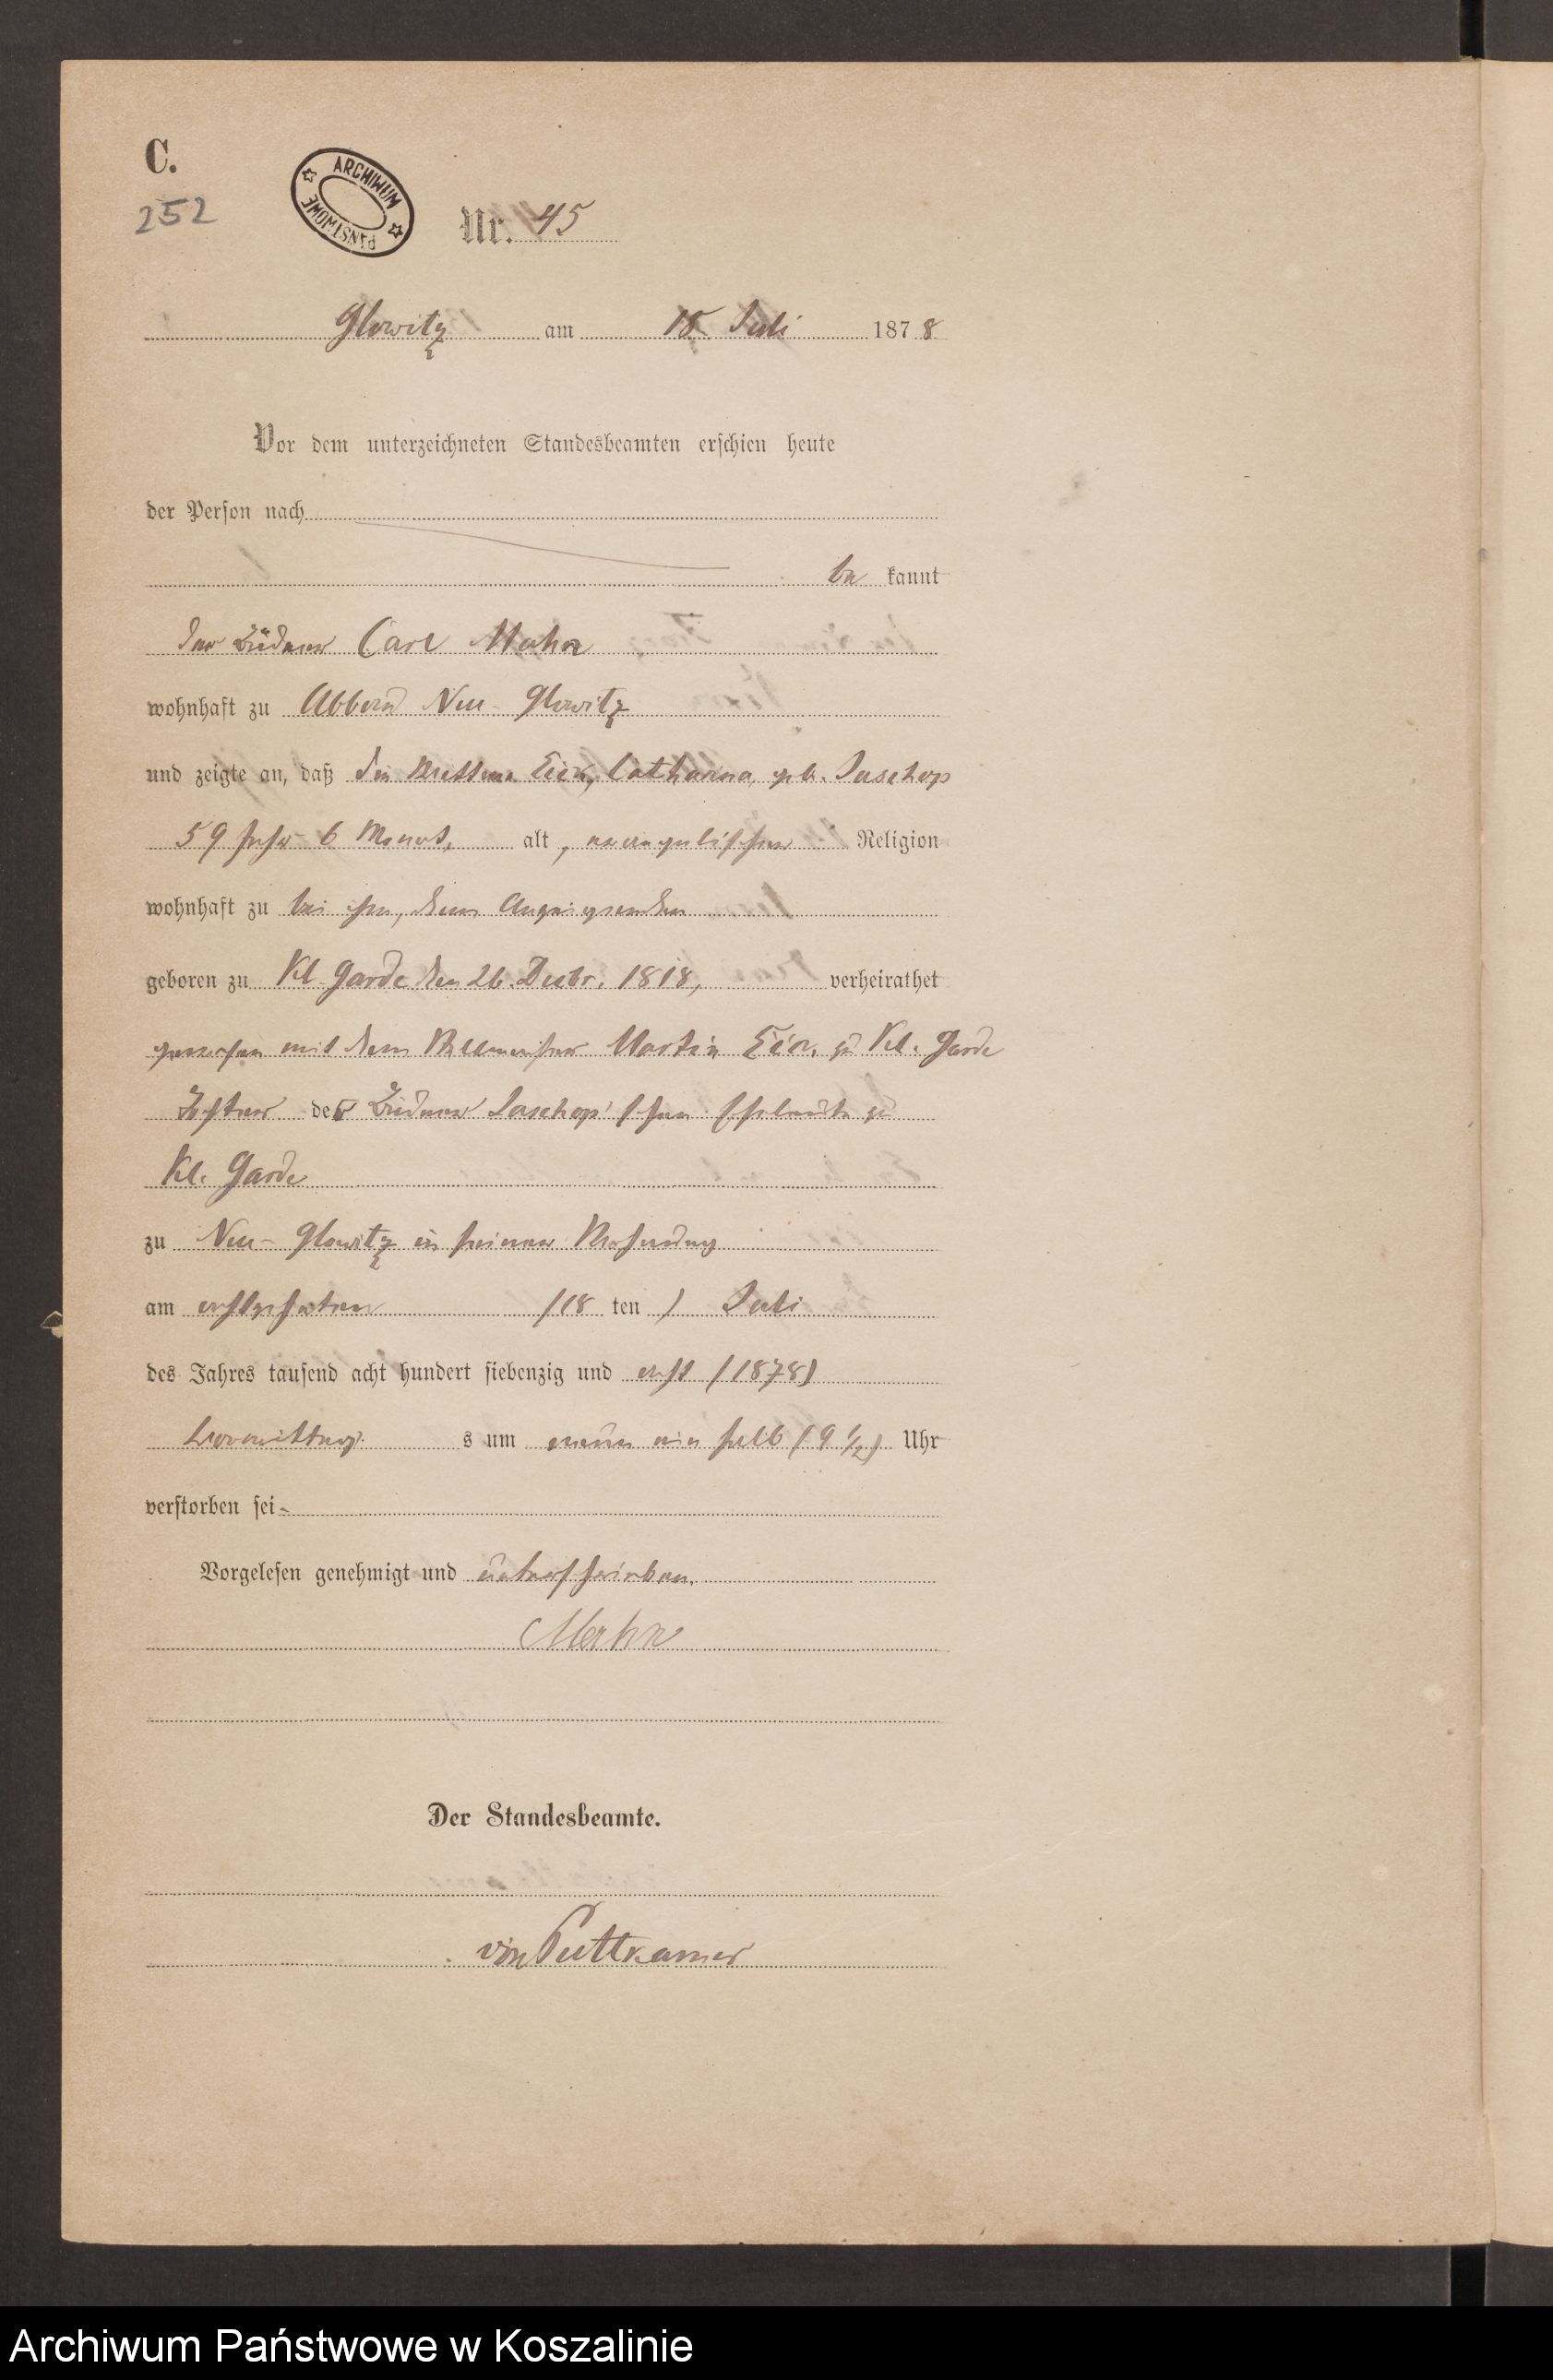 C.
252
ARCHIWUM PAŃSTWOWE
Nr. 45
Glowitz am 18. Juli 1878
Vor dem unterzeichneten Standesbeamten erschien heute
der Person nach
be kannt
der Büdner Carl
wohnhaft zu Abbau Neu-Glowitz
und zeigte an, daß die Catharina, geb. Jaschop
59 Jahr 6 Monat, alt, evangelischer Religion
wohnhaft zu bei ihm, dem Anzeigenden
geboren zu Kl. Garde den 26. Decbr. 1818, verheirathet
gewesen mit dem Martin zu Kl. Garde
Tochter der Büdner Jaschop'schen Eheleute zu
Kl. Garde
zu Neu-Glowitz in seiner Wohnung
am achtzehnten (18 ten) Juli
des Jahres tausend acht hundert siebenzig und acht (1878)
Vormittag s um neun ein halb (9 1/2) Uhr
verstorben sei-
Vorgelesen genehmigt und unterschrieben.
Der Standesbeamte.
von Puttkamer
Archiwum Państwowe w Koszalinie